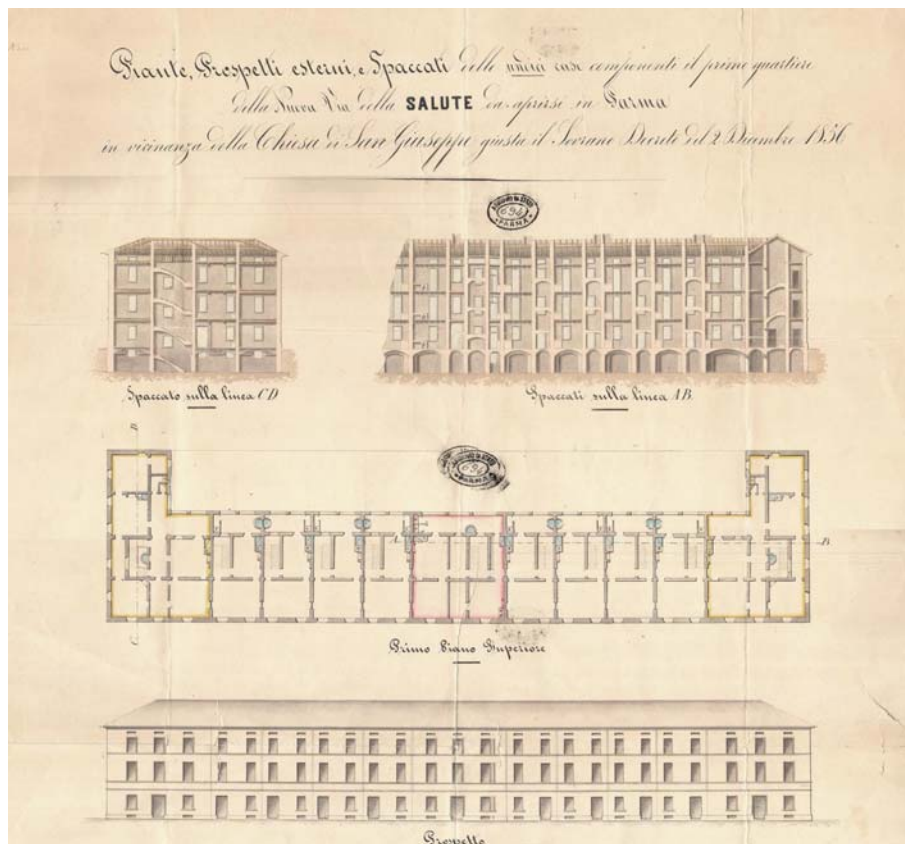 Piante, Prospetti esterni, e Spaccati delle undici case componenti il primo quartiere
della Nuova Via della SALUTE da aprirsi in Parma
in vicinanza della Chiesa di San Giuseppe giusta il Sovrano Decreto del 2 Dicembre 1856
694
PARMA
Spaccato sulla linea CD
Spaccati sulla linea AB
694
PARMA
D
A
B
C
Primo Piano Superiore
Prospetto